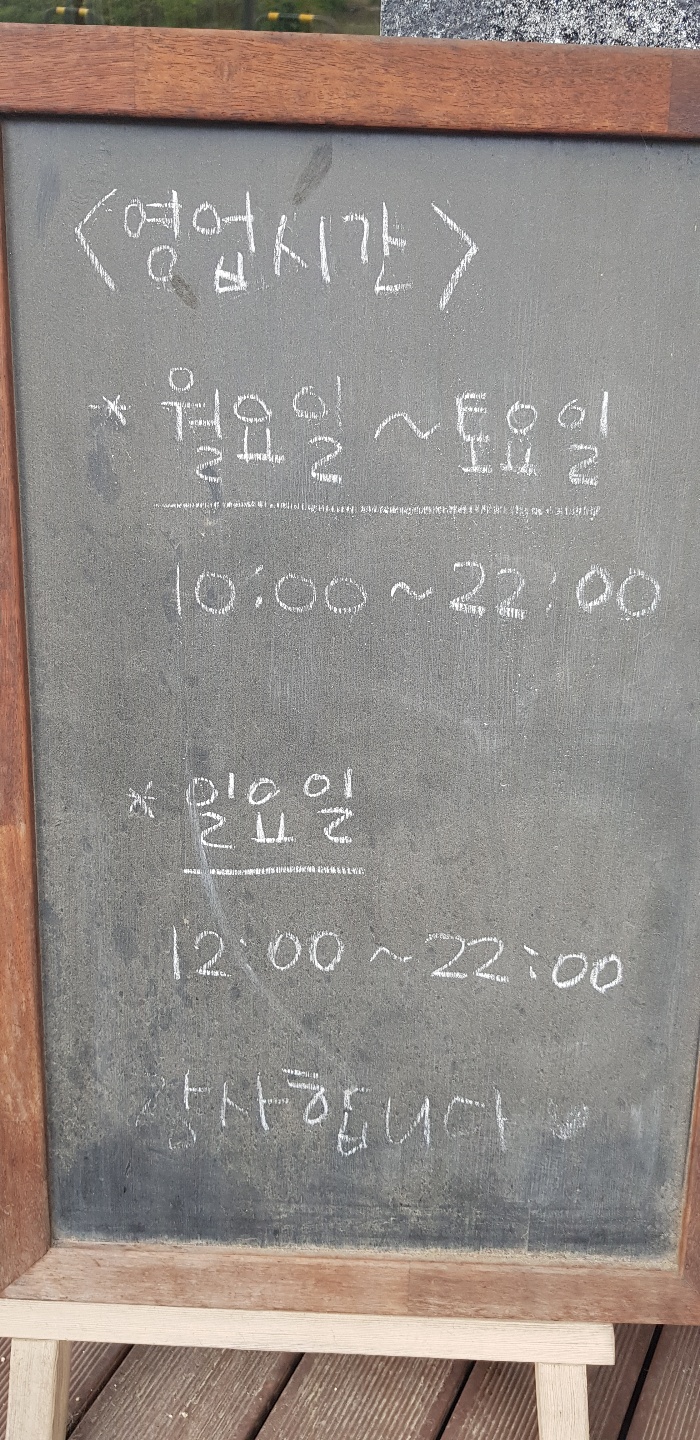 <영업시간>
* 월요일 ~ 토요일
10:00 ~ 22:00
* 일요일
12:00 ~ 22:00
감사합니다 ♥